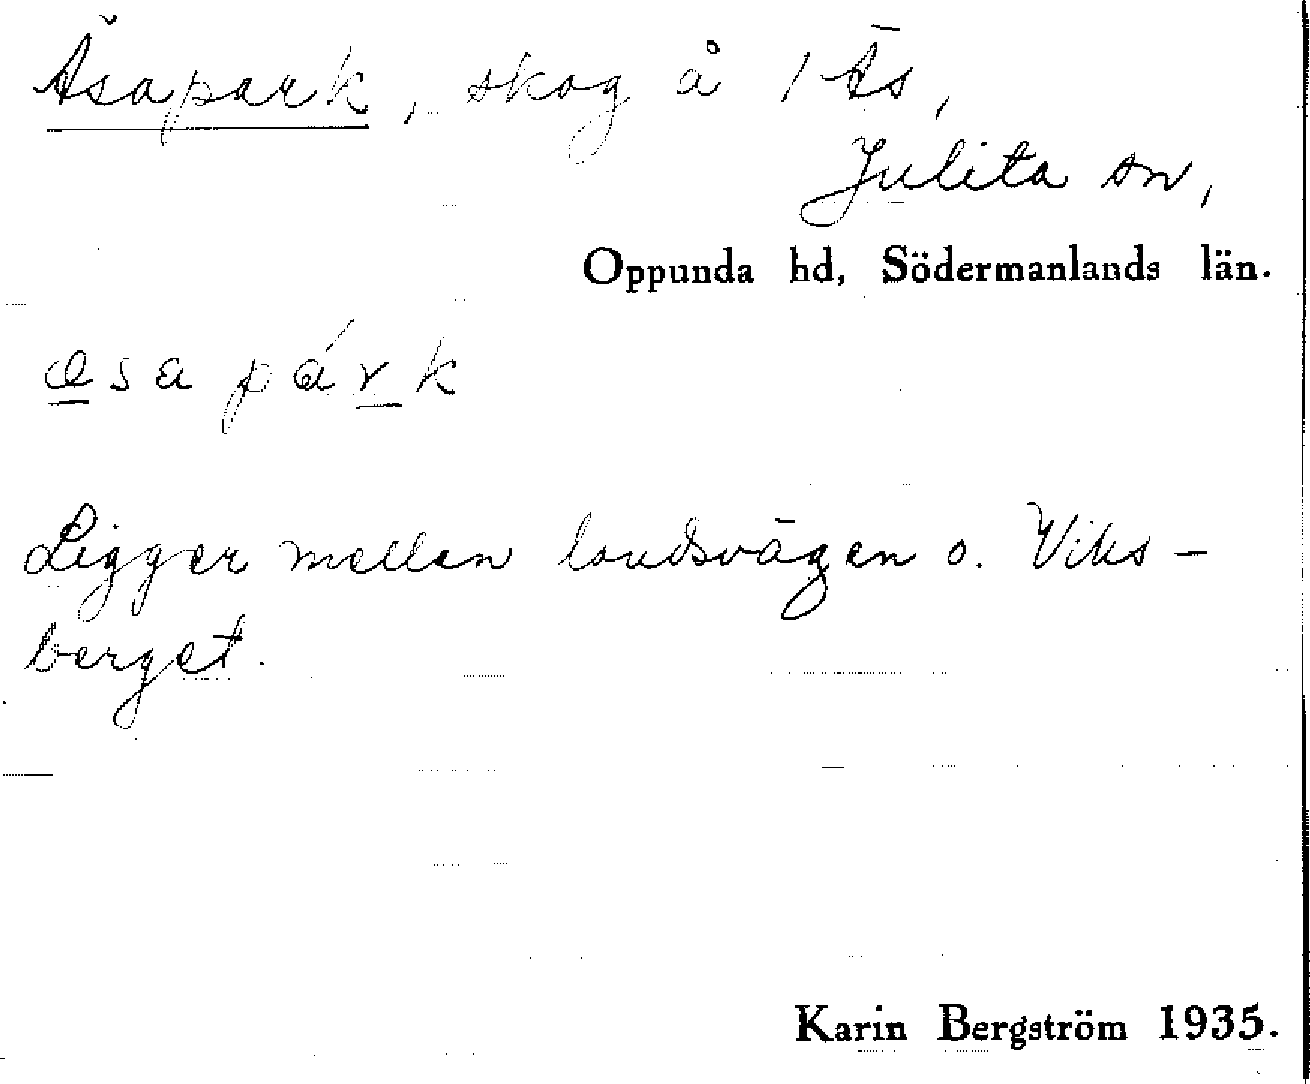 Äsapark, skog å 1 Äs,
Julita sn,
Oppunda hd, Södermanlands län.
æsapárk
Ligger mellan landsvägen o. Viks-
berget.
Karin Bergström 1935.